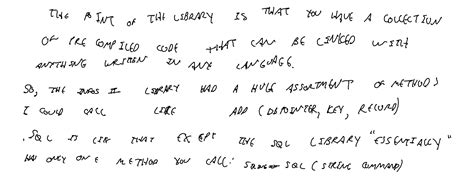 THE POINT OF THE LIBRARY IS THAT YOU HAVE A COLLECTION
OF PRE COMPILED CODE THAT CAN BE LINKED WITH
ANYTHING WRITTEN IN ANY LANGUAGE.
SO, THE LIBRARY HAD A HUGE ASSORTMENT OF METHODS
I COULD CALL LIKE ADD (DBPOINTER, KEY, RECORD)
.SQL IS LIKE THAT EXCEPT THE SQL LIBRARY "ESSENTIALLY"
HAS ONLY ONE METHOD YOU CALL: SQL (STRING COMMAND)